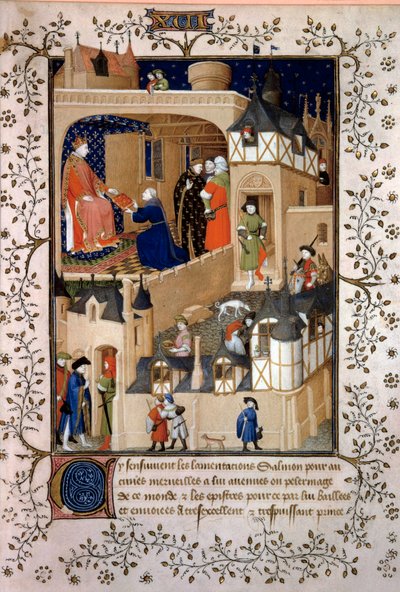 XCII
Cy sensuivent les lamentacions Salmon pour au
cunes merveilles a lui avenues ou pelerinage
de ce monde & les epistres pour ce par lui baillees
et envoiees A tresexcellent & trespuissant prince